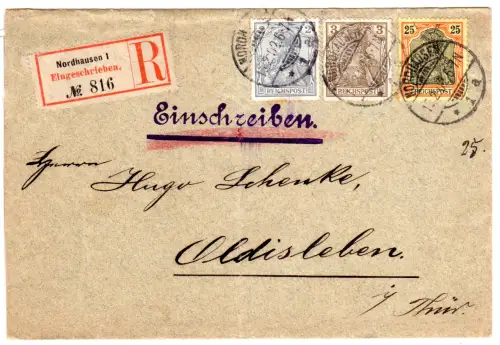 Nordhausen 1
Eingeschrieben.
R
№ 816
2
REICHSPOST
3
REICHSPOST
25
25
REICHSPOST
NORDHAUSEN
Einschreiben.
25.
Herrn
Hugo Schenke,
Oldisleben.
i/ Thür.